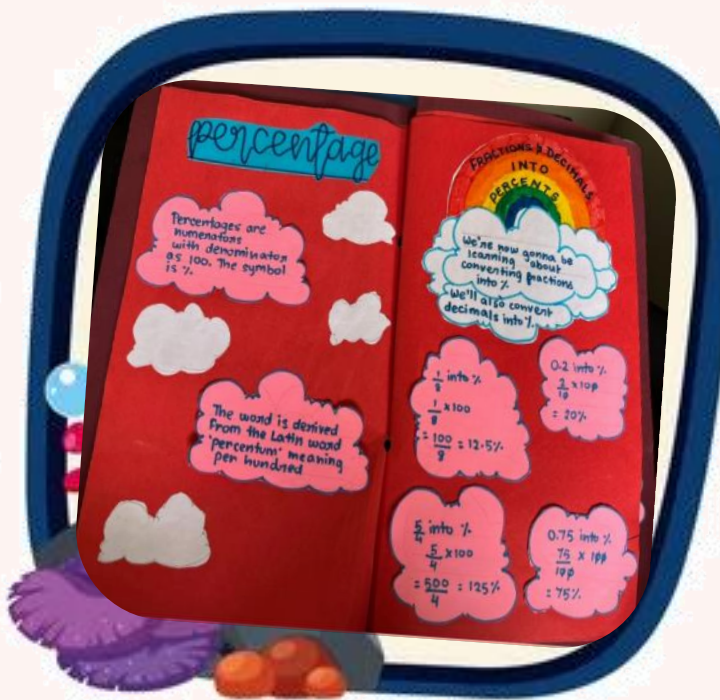 percentage
Percentages are
numerators
with denominator
as 100. The symbol
is %.
The word is derived
from the Latin word
'percentum' meaning
per hundred
FRACTIONS & DECIMALS
INTO
PERCENTS
We're now gonna be
learning about
converting fractions
into %
We'll also convert
decimals into %.
1/8 into %
1/8 x100
= 100/8 = 12.5%
0.2 into %
2/10 x100
= 20%
5/4 into %
5/4 x100
= 500/4 = 125%
0.75 into %
75/100 x 100
= 75%